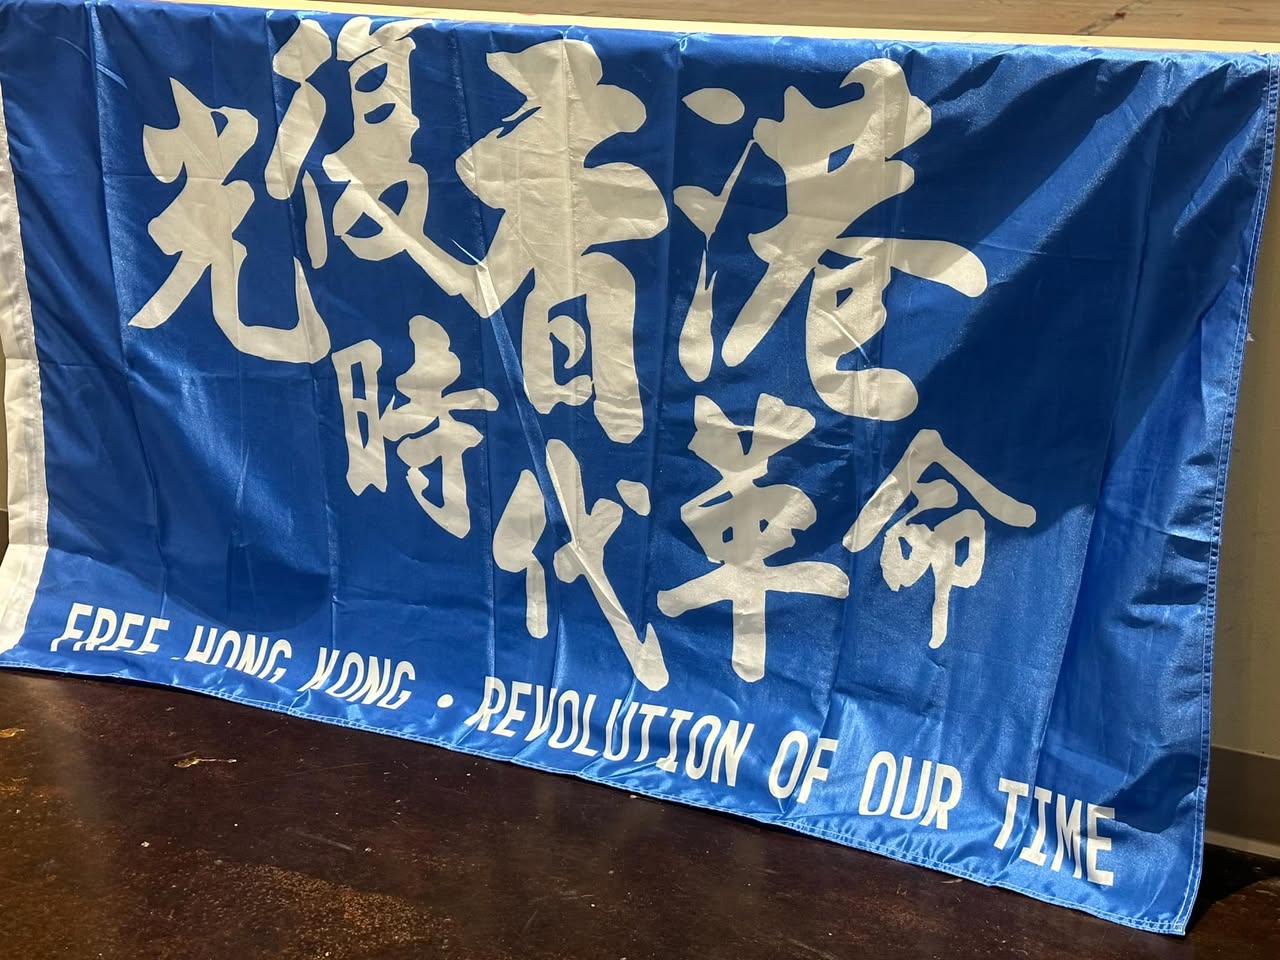 光復香港
時代革命
FREE HONG KONG • REVOLUTION OF OUR TIME